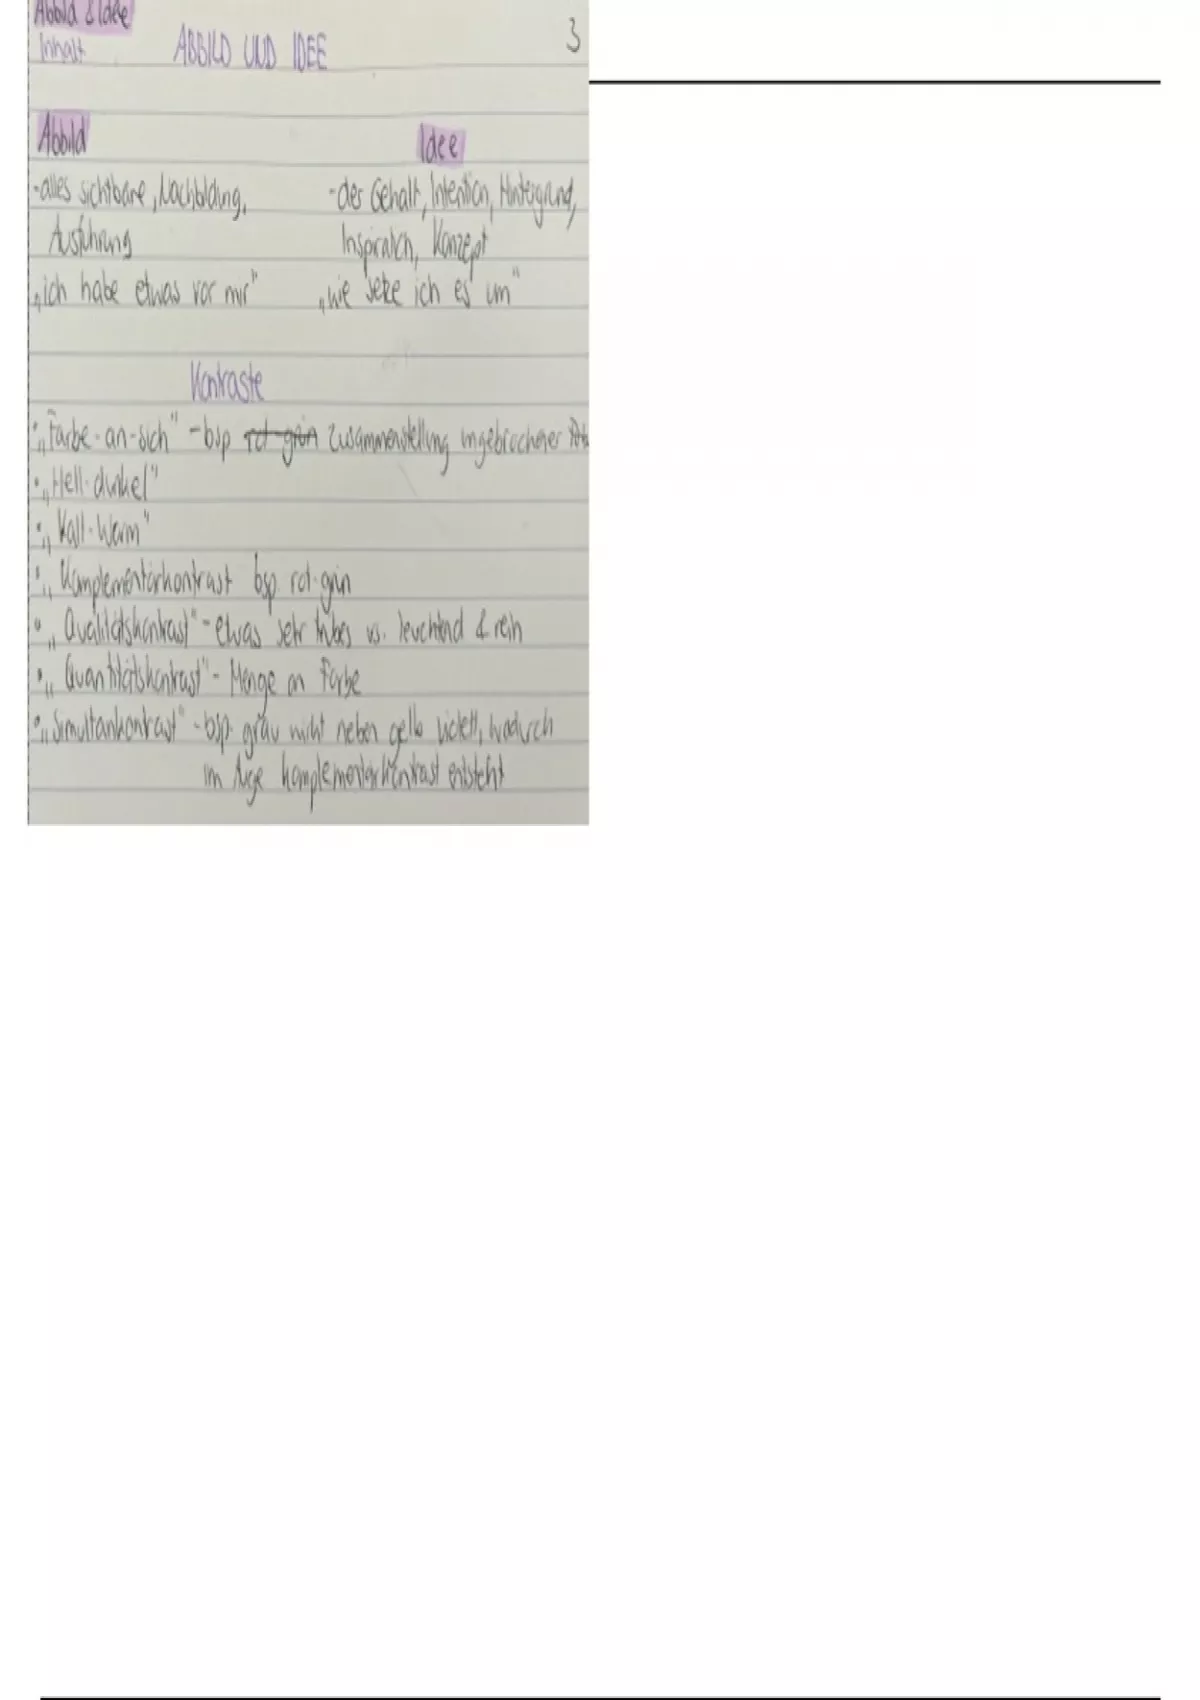 Abbild & Idee
Inhalt
ABBILD UND IDEE
3
Abbild
-alles sichtbare, Nachbildung,
Ausführung
„ich habe etwas vor mir"
Idee
-der Gehalt, Intention, Hintergrund,
Inspiration, Konzept
„wie setze ich es um"
Kontraste
• „Farbe-an-sich" - bsp rot grün Zusammenstellung ungebrochener
• „Hell-dunkel"
• „Kalt-Warm"
• „Komplementärkontrast bsp rot-grün
• „Qualitätskontrast" - etwas sehr trübes vs. leuchtend & rein
• „Quantitätskontrast" - Menge an Farbe
• „Simultankontrast" - bsp. grau wirkt neben gelb violett, wodurch
im Auge Komplementärkontrast entsteht